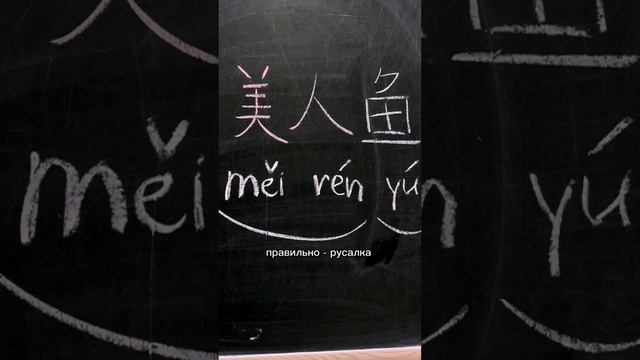 美人鱼
měi rén yú
правильно - русалка